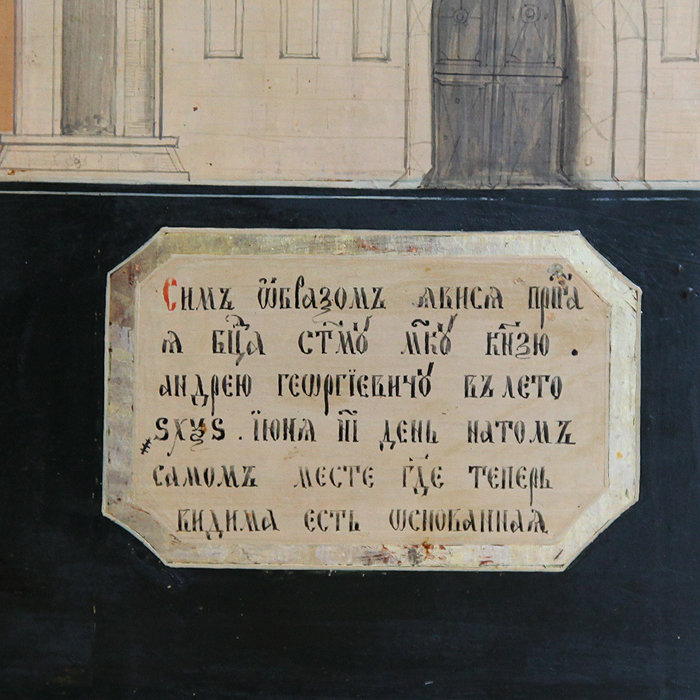 Симъ ѡбразомъ ꙗвисѧ прⷭ҇та
ѧ бц҃а ст҃мꙋ мч҃кꙋ кнѧзю .
андрею геѡргїевичꙋ въ лето
҂ѕхѯѕ . їюнѧ ії день натомъ
самомъ месте где теперь
видима есть ѡснованнаѧ